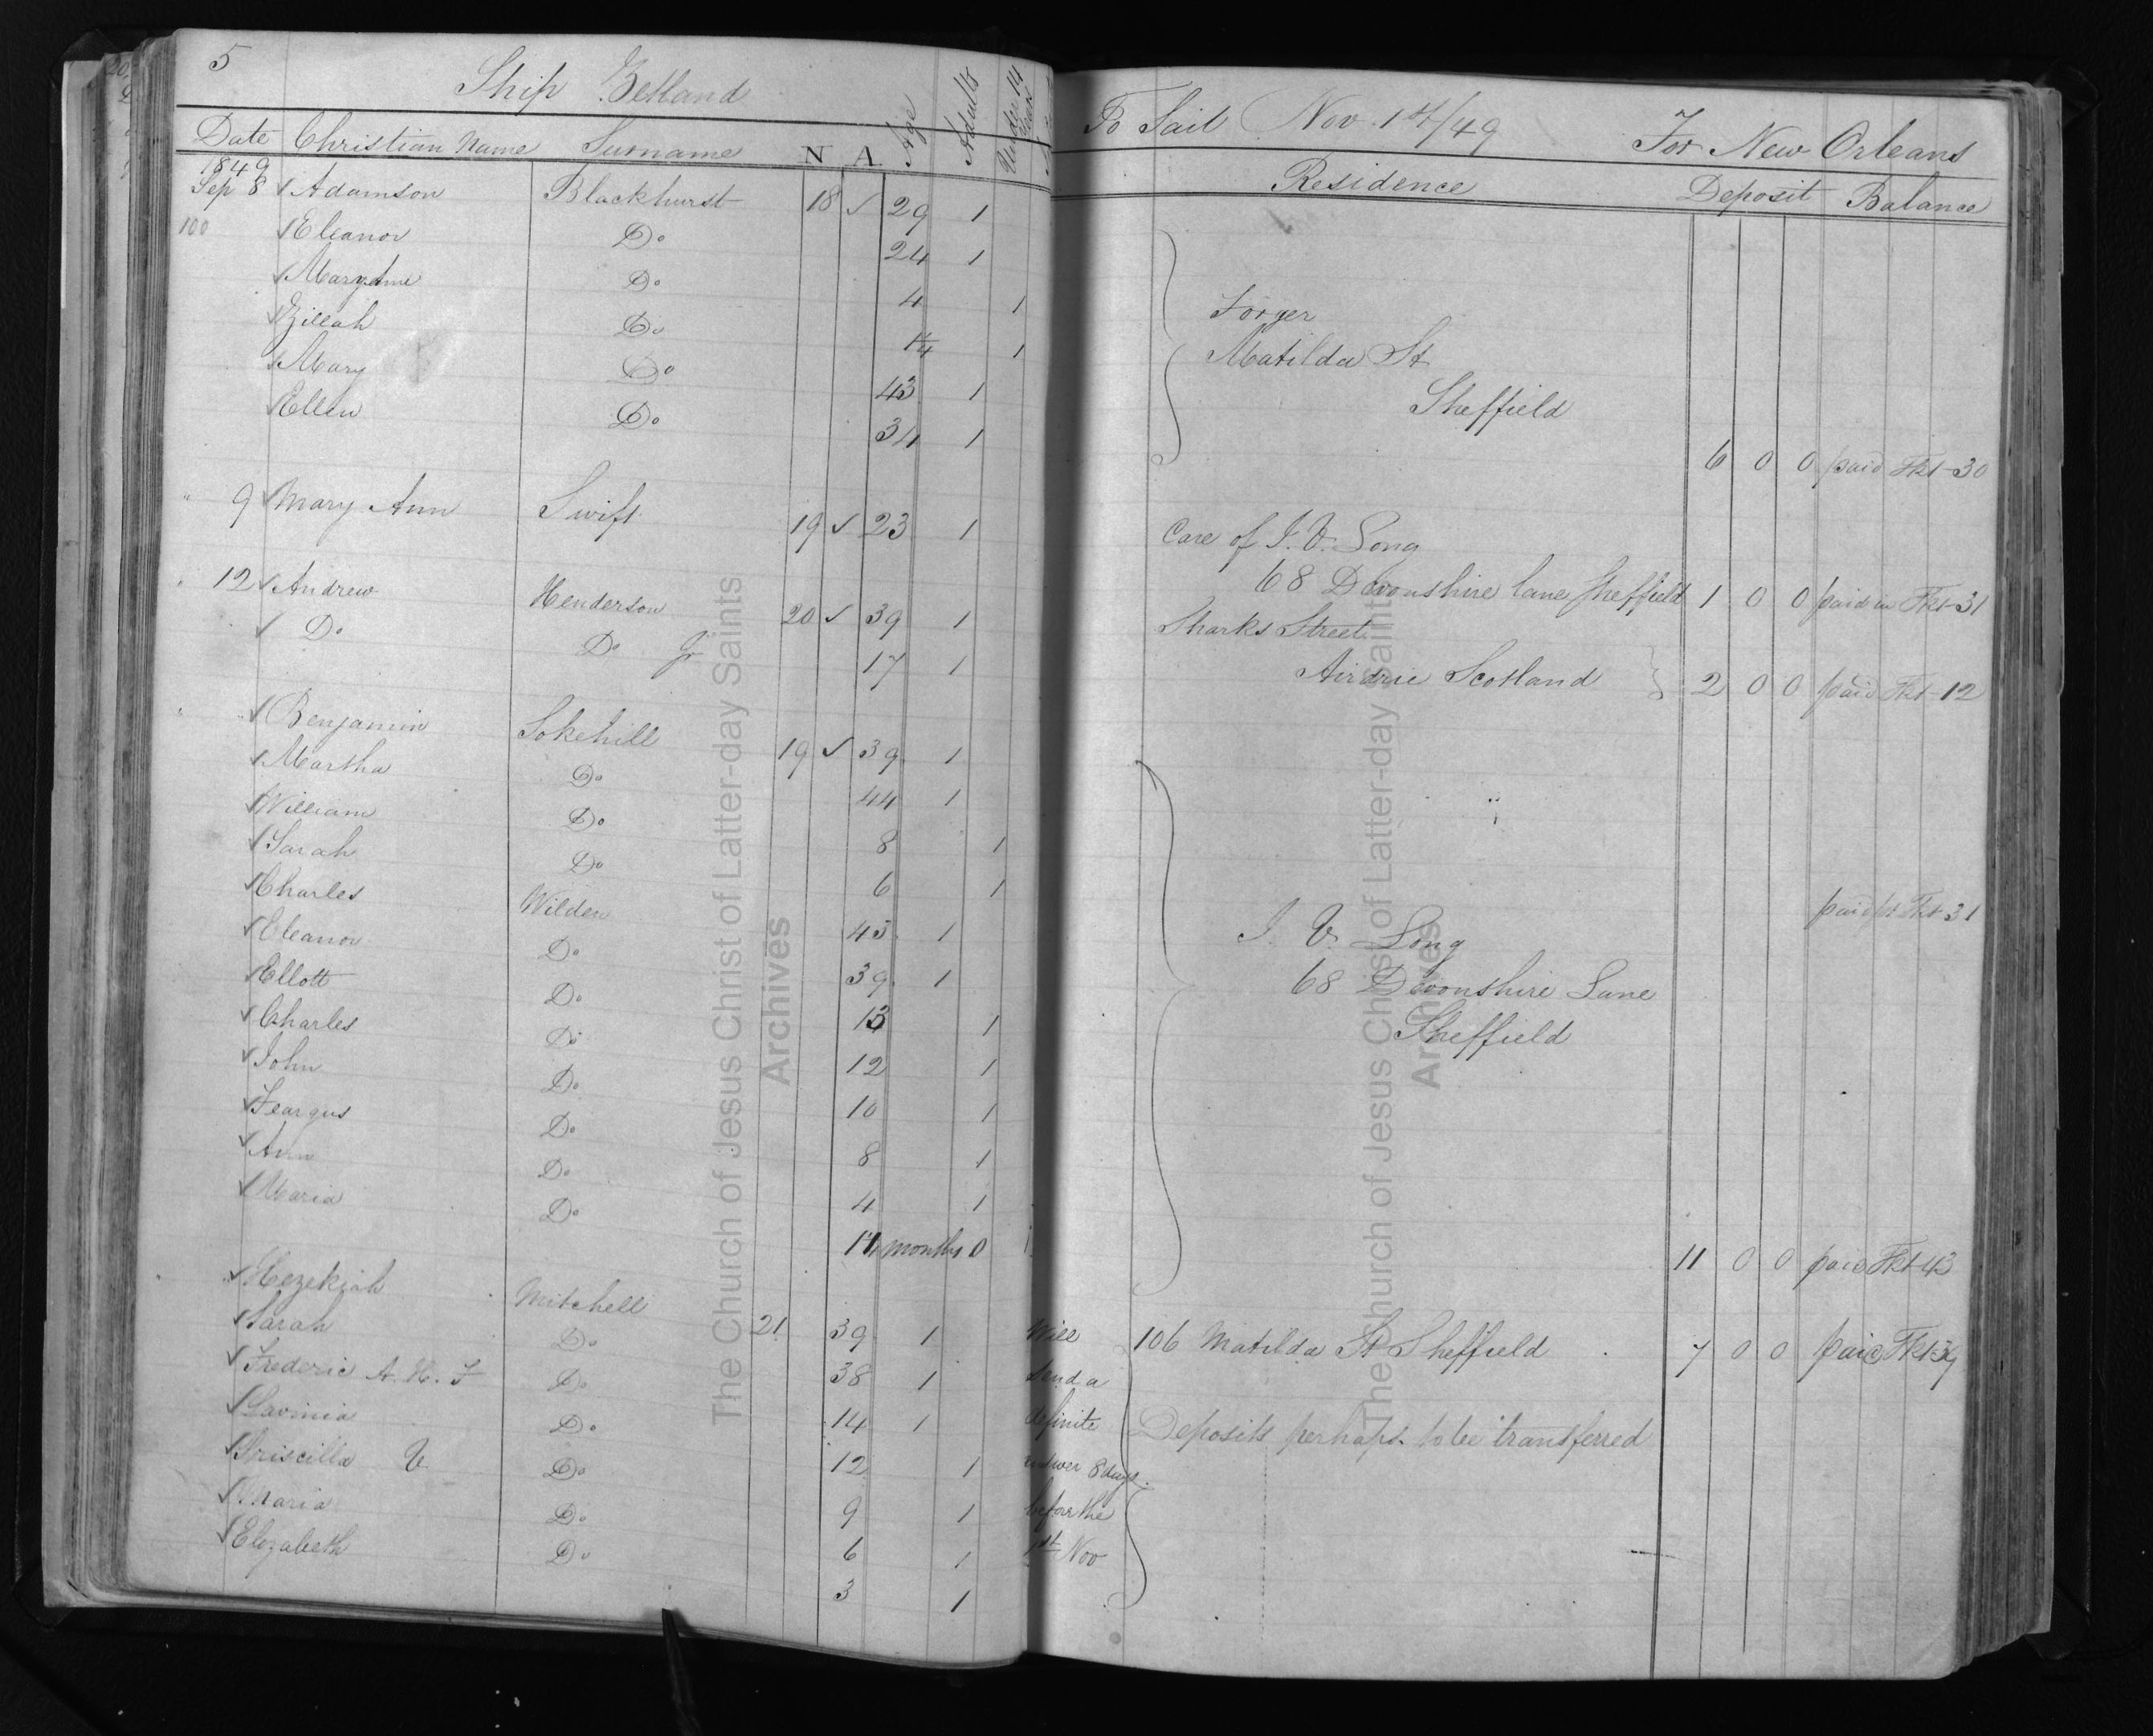 5 Ship Zetland
Date Christian Name Surname N A Age Adults Under 14
1849
Sep 8 Adamson Blackhurst 18 ✓ 29 1
100 Eleanor Do 24 1
Maryann Do 4 1
Zillah Do 1
Mary Do 43 1
Ellen Do 34 1
" 9 Mary Ann Swift 19 ✓ 23 1
" 12 Andrew Henderson 20 ✓ 39 1
Do Do Jr 17 1
" " Benjamin Sokehill 19 ✓ 39 1
Martha Do 44 1
William Do 8 1
Sarah Do 6 1
Charles Wilden 43 1
Eleanor Do 39 1
Ellott Do 13 1
Charles Do 12 1
John Do 10 1
Feargus Do 8 1
Ann Do 4 1
Maria Do months 0 1
Hezekiah Mitchell 21 39 1 Will
Sarah Do 38 1 send a
Frederic A. H. F Do 14 1 definite
Lavinia Do 12 1 answer 8 days
Priscilla V Do 9 1 before the
Maria Do 6 1 1st Nov
Elizabeth Do 3 1
To Sail Nov. 1st/49 For New Orleans
Residence Deposit Balance
Forger
Matilda St
Sheffield
6 0 0 paid Tkt 30
Care of J. V. Long
68 Devonshire lane Sheffield 1 0 0 paid in Tkt 31
Sharks Street
Airdrie Scotland 2 0 0 paid Tkt 12
paid pr Tkt 31
J. V. Long
68 Devonshire Lane
Sheffield
11 0 0 paid Tkt 43
106 Matilda St Sheffield 7 0 0 paid Tkt 39
Deposits perhaps to be transferred
The Church of Jesus Christ of Latter-day Saints
Archives
The Church of Jesus Christ of Latter-day Saints
Archives